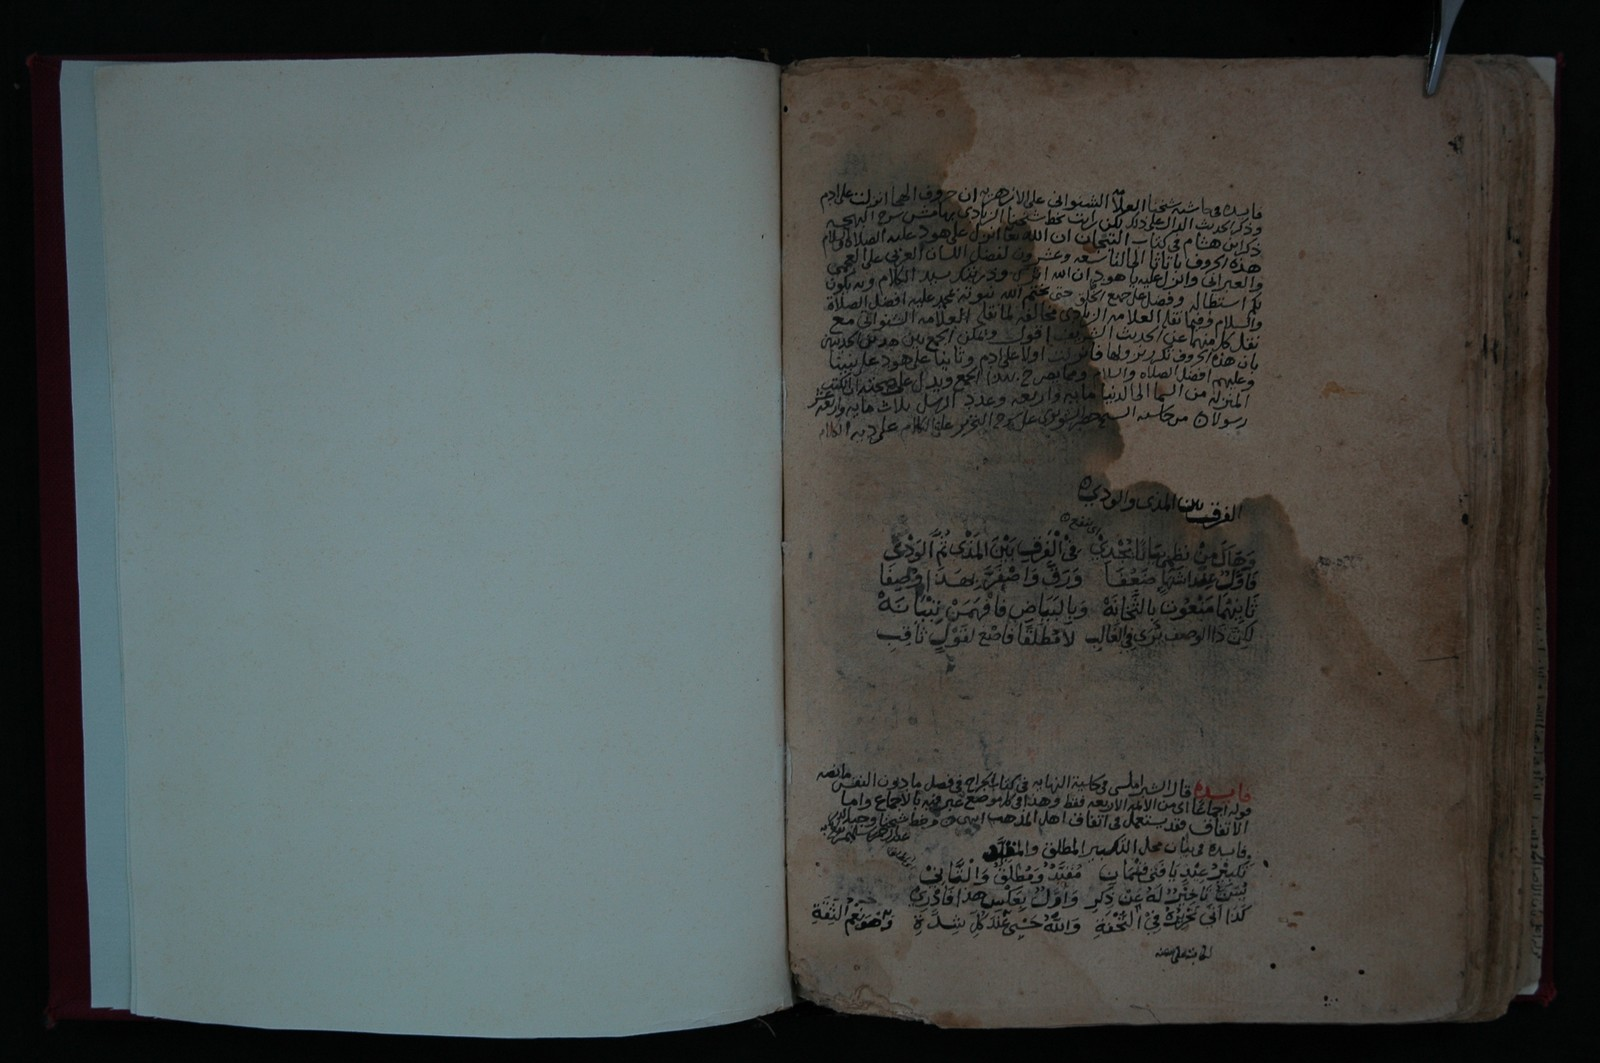 فايده في حاشية شيخنا العلامة الشنواني على الازهرية ان حروف الهجا انزلت على ادم
وذكر الحديث الدال على ذلك لكن رايت بخط شيخنا الزيادي بهامش شرح البهجه
ذكر ابن هشام في كتاب التيجان ان الله تعا انزل على هود عليه الصلاة والسلام
هذه الحروف باتاثا الى التاسعه وعشرون لفضل اللسان العربي على العجمي
والعبراني وانزل عليه يا هود ان الله سيد الكلام وبه يكون
لكم استطاله وفضل على جميع الخلق حتى يختم الله نبوته بمحمد عليه افضل الصلاة
والسلام وفيما نقله العلامه الزيادي مخالفة لما نقله العلامه الشنواني مع
نقل كل منهما عن الحديث الشريف اقول ويمكن الجمع بين هذين الحديثين
بان هذه الحروف تكرر نزولها فانزلت اولا على ادم وثانيا على هود على نبينا
وعليهم افضل الصلاه والسلام ومما يصرح بهذا الجمع ويدل على صحته ان الكتب
المنزله من السما الى الدنيا مايه واربعه وعدد الرسل ثلاث مايه واربعة عشر
رسولا من حاشية على شرح التحرير على الكلام على
الفرق بين المذي والودي
اي ينفع
وهاك من نظمي بيانا يجدي في الفرق بين المذي ثم الودي
فاول عند اشتها ضعفا ورق واصفر بهذا وصفا
ثانيهما منعوت بالثخانة وبالبياض فافهمن تبيانه
لكن ذا الوصف يرى في الغالب لا مطلقا فاصغ لقول ثاقب
فايده قال الشبراملسي في حاشية النهايه في كتاب الجراح في فصل ما دون النفس ما نصه
قوله اجماعا اي من الائمة الاربعه فقط وهذا في كل موضع عبر فيه بالاجماع واما
الاتفاق فقد يستعمل في اتفاق اهل المذهب انتهى من خط شيخنا
وفايدة في بيان محل التكبير المطلق والمقيد
تكبير عيد يا فتى قسمان مقيد ومطلق والثاني
يسن تاخير له عن ذكر واول بعكس هذا فادري
كذا اتى تحريره في التحفة والله حسبي عند كل شدة وهو نعم الثقة